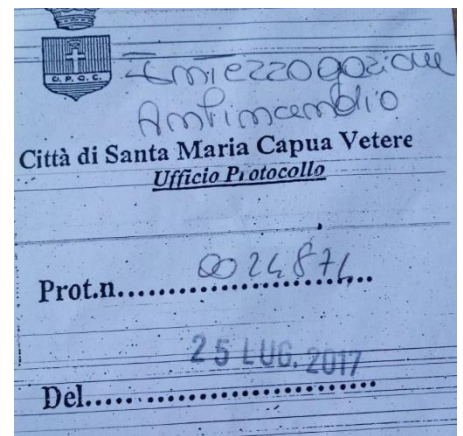 S.P.Q.C.
Interrogazione
Antincendio
Città di Santa Maria Capua Vetere
Ufficio Protocollo
Prot.n.....0024874...
Del.....25 LUG. 2017.....